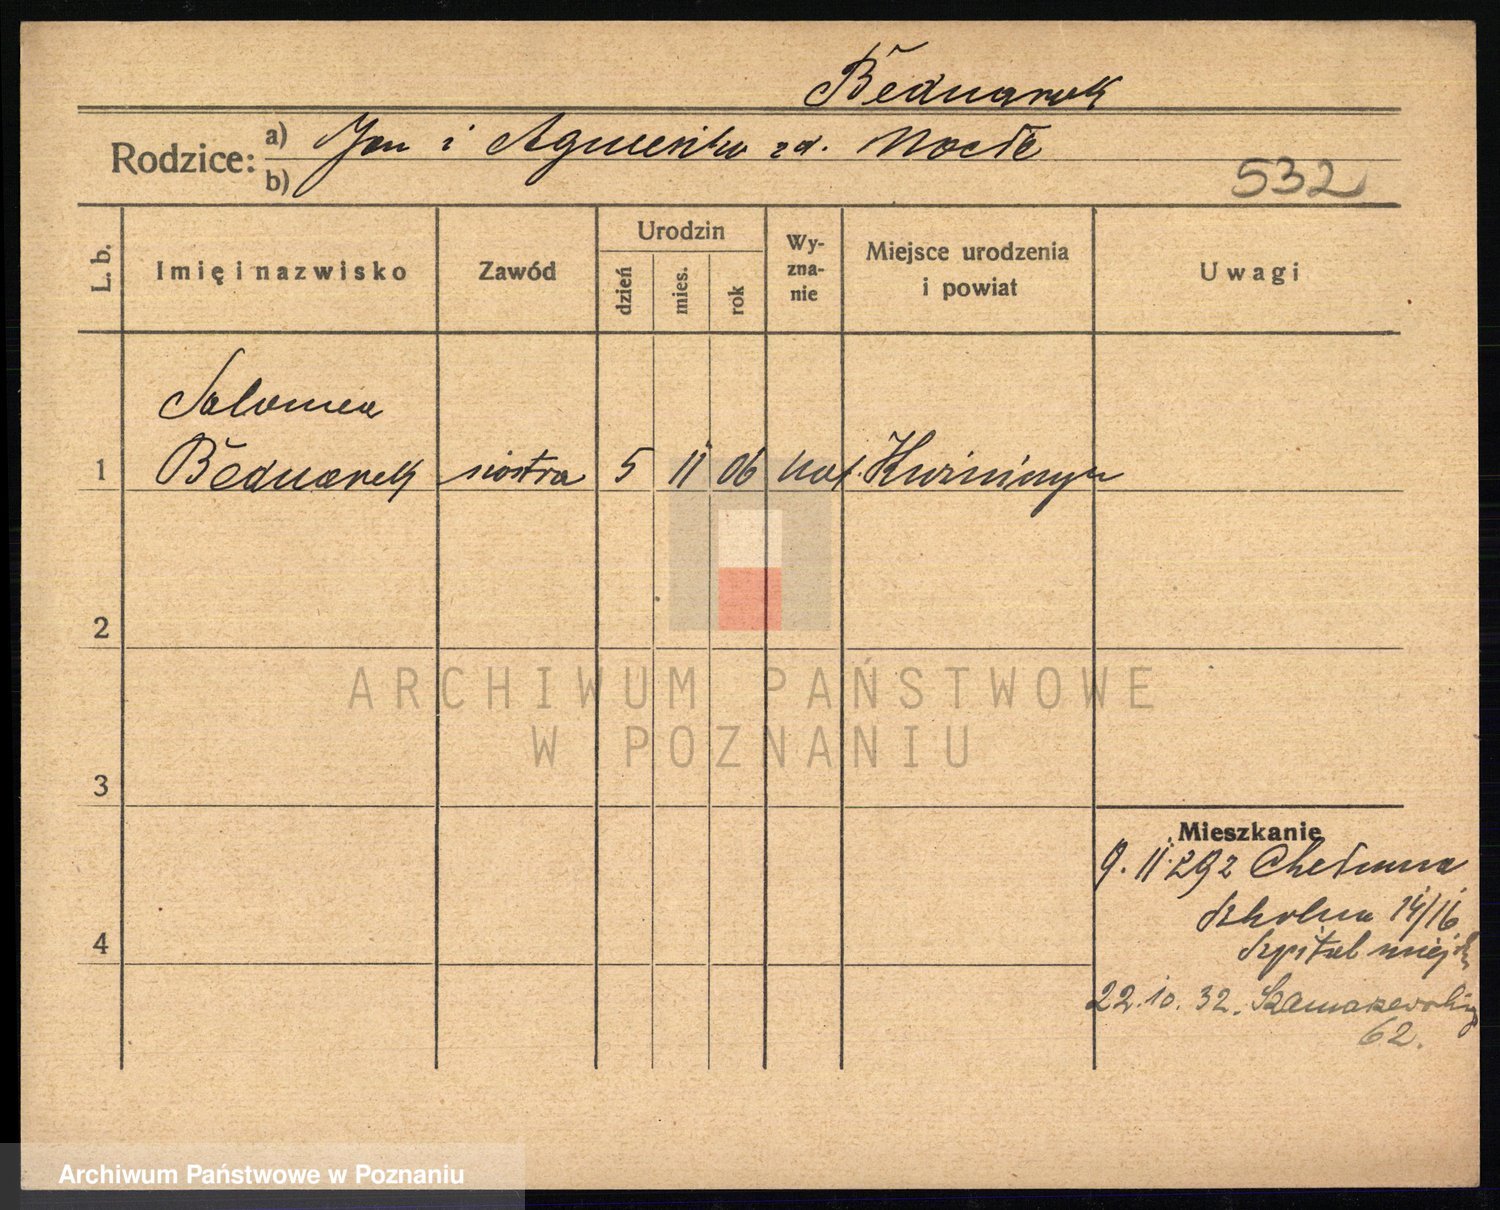 Bednarek
Rodzice: a) Jan i Agnieszka zd.
b)
532
L. b. Imię i nazwisko Zawód Urodzin dzień mies. rok Wy-zna-nie Miejsce urodzenia i powiat Uwagi
Salomea
1 Bednarek siostra 5 11 06 kat.
2
ARCHIWUM PAŃSTWOWE
W POZNANIU
3
Mieszkanie
9. 11. 29 z Chełmna
Szkolna 14/16
4 Szpital miejsk
22. 10. 32.
62.
Archiwum Państwowe w Poznaniu